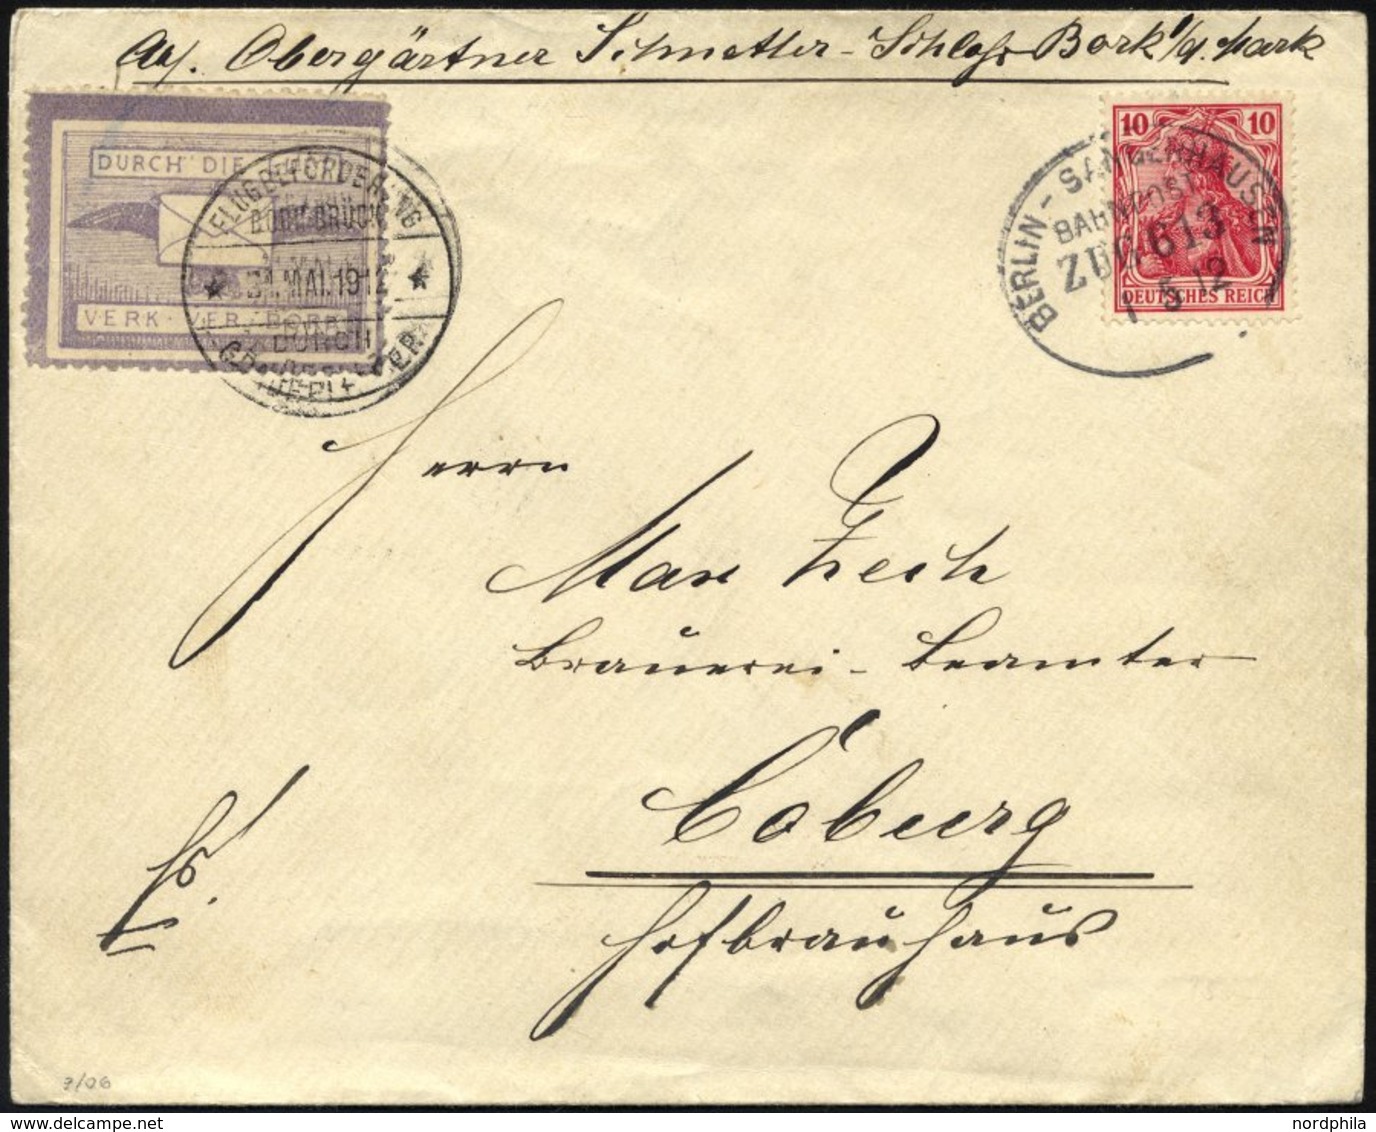 Obergärtner Schmetter - Schloss Bork i/d. Mark
DURCH DIE
VERK. VERBOT
FLUGBEFÖRDERUNG
BORK-BRÜCK
31.MAI.1912
DURCH
10 10
DEUTSCHES REICH
BERLIN - SANGERHAUSEN
BAHNPOST
ZUG 613
5 12
Herrn
Max Zech
Brauerei-Beamter
Coburg
Hofbrauhaus
3/06
nordphila